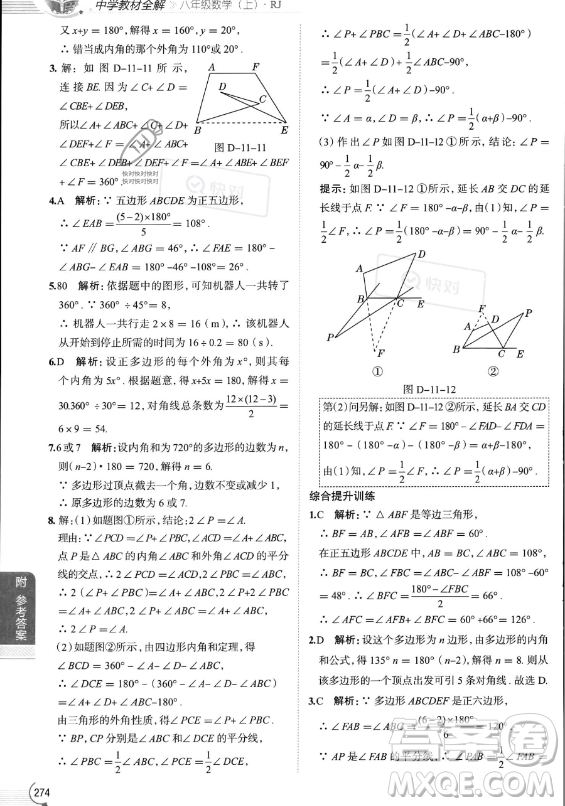 中学教材全解 八年级数学（上）·RJ
又x+y = 180°, 解得x = 110°或20°.
∴ 错当成内角的那个外角为110°或20°.
3. 解：如图D-11-11所示，
连接BE. 因为∠C+∠D=
∠CBE+∠DEB，
所以∠A+∠ABC+∠C+∠D+
∠DEF+∠F = ∠A+∠ABC+
∠CBE+∠DEB+∠DEF+∠F=∠A+∠ABE+∠BEF
+∠F = 360°.
A F D C B E
图 D-11-11
快对快对快对
快对快对快对
4.A 解析：∵ 五边形ABCDE为正五边形，
∴ ∠EAB=(5-2)×180°/5=108°.
∵ AF∥BG, ∠ABG = 46°, ∴ ∠FAE = 180°-
∠ABG-∠EAB = 180°-46°-108°= 26°.
5.80 解析：依据题中的图形，可知机器人一共转了
360°. ∵ 360°÷45°= 8，
∴ 机器人一共行走2×8 = 16（m），∴ 该机器人
从开始到停止所需的时间为16÷0.2 = 80（s）.
6.D 解析：设正多边形的每个外角为x°，则其每
个内角为5x°. 根据题意，得x+5x = 180, 解得x=
30.360°÷30°= 12, 对角线总条数为12×(12-3)/2=
6×9 = 54.
7.6或7 解析：设内角和为720°的多边形的边数为n,
则(n-2)·180°= 720°, 解得n = 6.
∵ 多边形过顶点截去一个角，边数不变或减少1,
∴ 原多边形的边数为6或7.
8. 解：(1)如题图①所示，结论：2∠P=∠A.
理由：∵ ∠PCD =∠P+∠PBC, ∠ACD =∠A+∠ABC,
点P是△ABC的内角∠ABC和外角∠ACD的平分
线的交点，∴ 2∠PCD =∠ACD, 2∠PBC =∠ABC,
∴ 2(∠P+∠PBC)=∠A+∠ABC, 2∠P+2∠PBC
=∠A+∠ABC, 2∠P+∠ABC=∠A+∠ABC,
∴ 2∠P =∠A.
(2)如题图②所示，由四边形内角和定理，得
∠BCD = 360°-∠A-∠D-∠ABC,
∴ ∠DCE = 180°-(360°-∠A-∠D-∠ABC)=
∠A+∠D+∠ABC-180°.
由三角形的外角性质，得∠PCE =∠P+∠PBC.
∵ BP, CP分别是∠ABC和∠DCE的平分线，
∴ ∠PBC=1/2∠ABC, ∠PCE=1/2∠DCE,
∴ ∠P+∠PBC=1/2(∠A+∠D+∠ABC-180°)
=1/2(∠A+∠D)+1/2∠ABC-90°,
∴ ∠P=1/2(∠A+∠D)-90°.
∵ ∠A=α, ∠D=β, ∴ ∠P=1/2(α+β)-90°.
(3)作出∠P如图D-11-12①所示，结论：∠P=
90°-1/2α-1/2β.
提示：如图D-11-12①所示，延长AB交DC的延
长线于点F. ∵ ∠F = 180°-α-β, 由(1)知，∠P=
1/2∠F, ∴ ∠P=1/2(180°-α-β)=90°-1/2α-1/2β.
D A B C E P F
①
F P A D B C E
②
图 D-11-12
第(2)问另解：如图D-11-12②所示，延长BA交CD
的延长线于点F. ∵ ∠F = 180°-∠FAD-∠FDA =
180°-(180°-α)-(180°-β)=α+β-180°,
由(1)知，∠P=1/2∠F, ∴ ∠P=1/2(α+β)-90°.
综合提升训练
1.C 解析：∵ △ABF是等边三角形，
∴ BF = AB, ∠AFB =∠ABF = 60°.
在正五边形ABCDE中，AB = BC, ∠ABC = 108°,
∴ BF = BC, ∠FBC =∠ABC-∠ABF = 108°-60°
= 48°. ∴ ∠BFC=(180°-∠FBC)/2=66°,
∴ ∠AFC =∠AFB+∠BFC = 60°+66°= 126°.
2.D 解析：设这个多边形为n边形，由多边形的内角
和公式，得135°n = 180°(n-2), 解得n = 8. 则从
该多边形的一个顶点出发可引5条对角线. 故选D.
3.C 解析：∵ 多边形ABCDEF是正六边形，
∴ ∠FAB=(6-2)×180°/6=120°.
∵ AP是∠FAB的平分线，∴ ∠PAB=1/2∠FAB=
附 参考答案
274
快对
作业帮
MXQE.COM